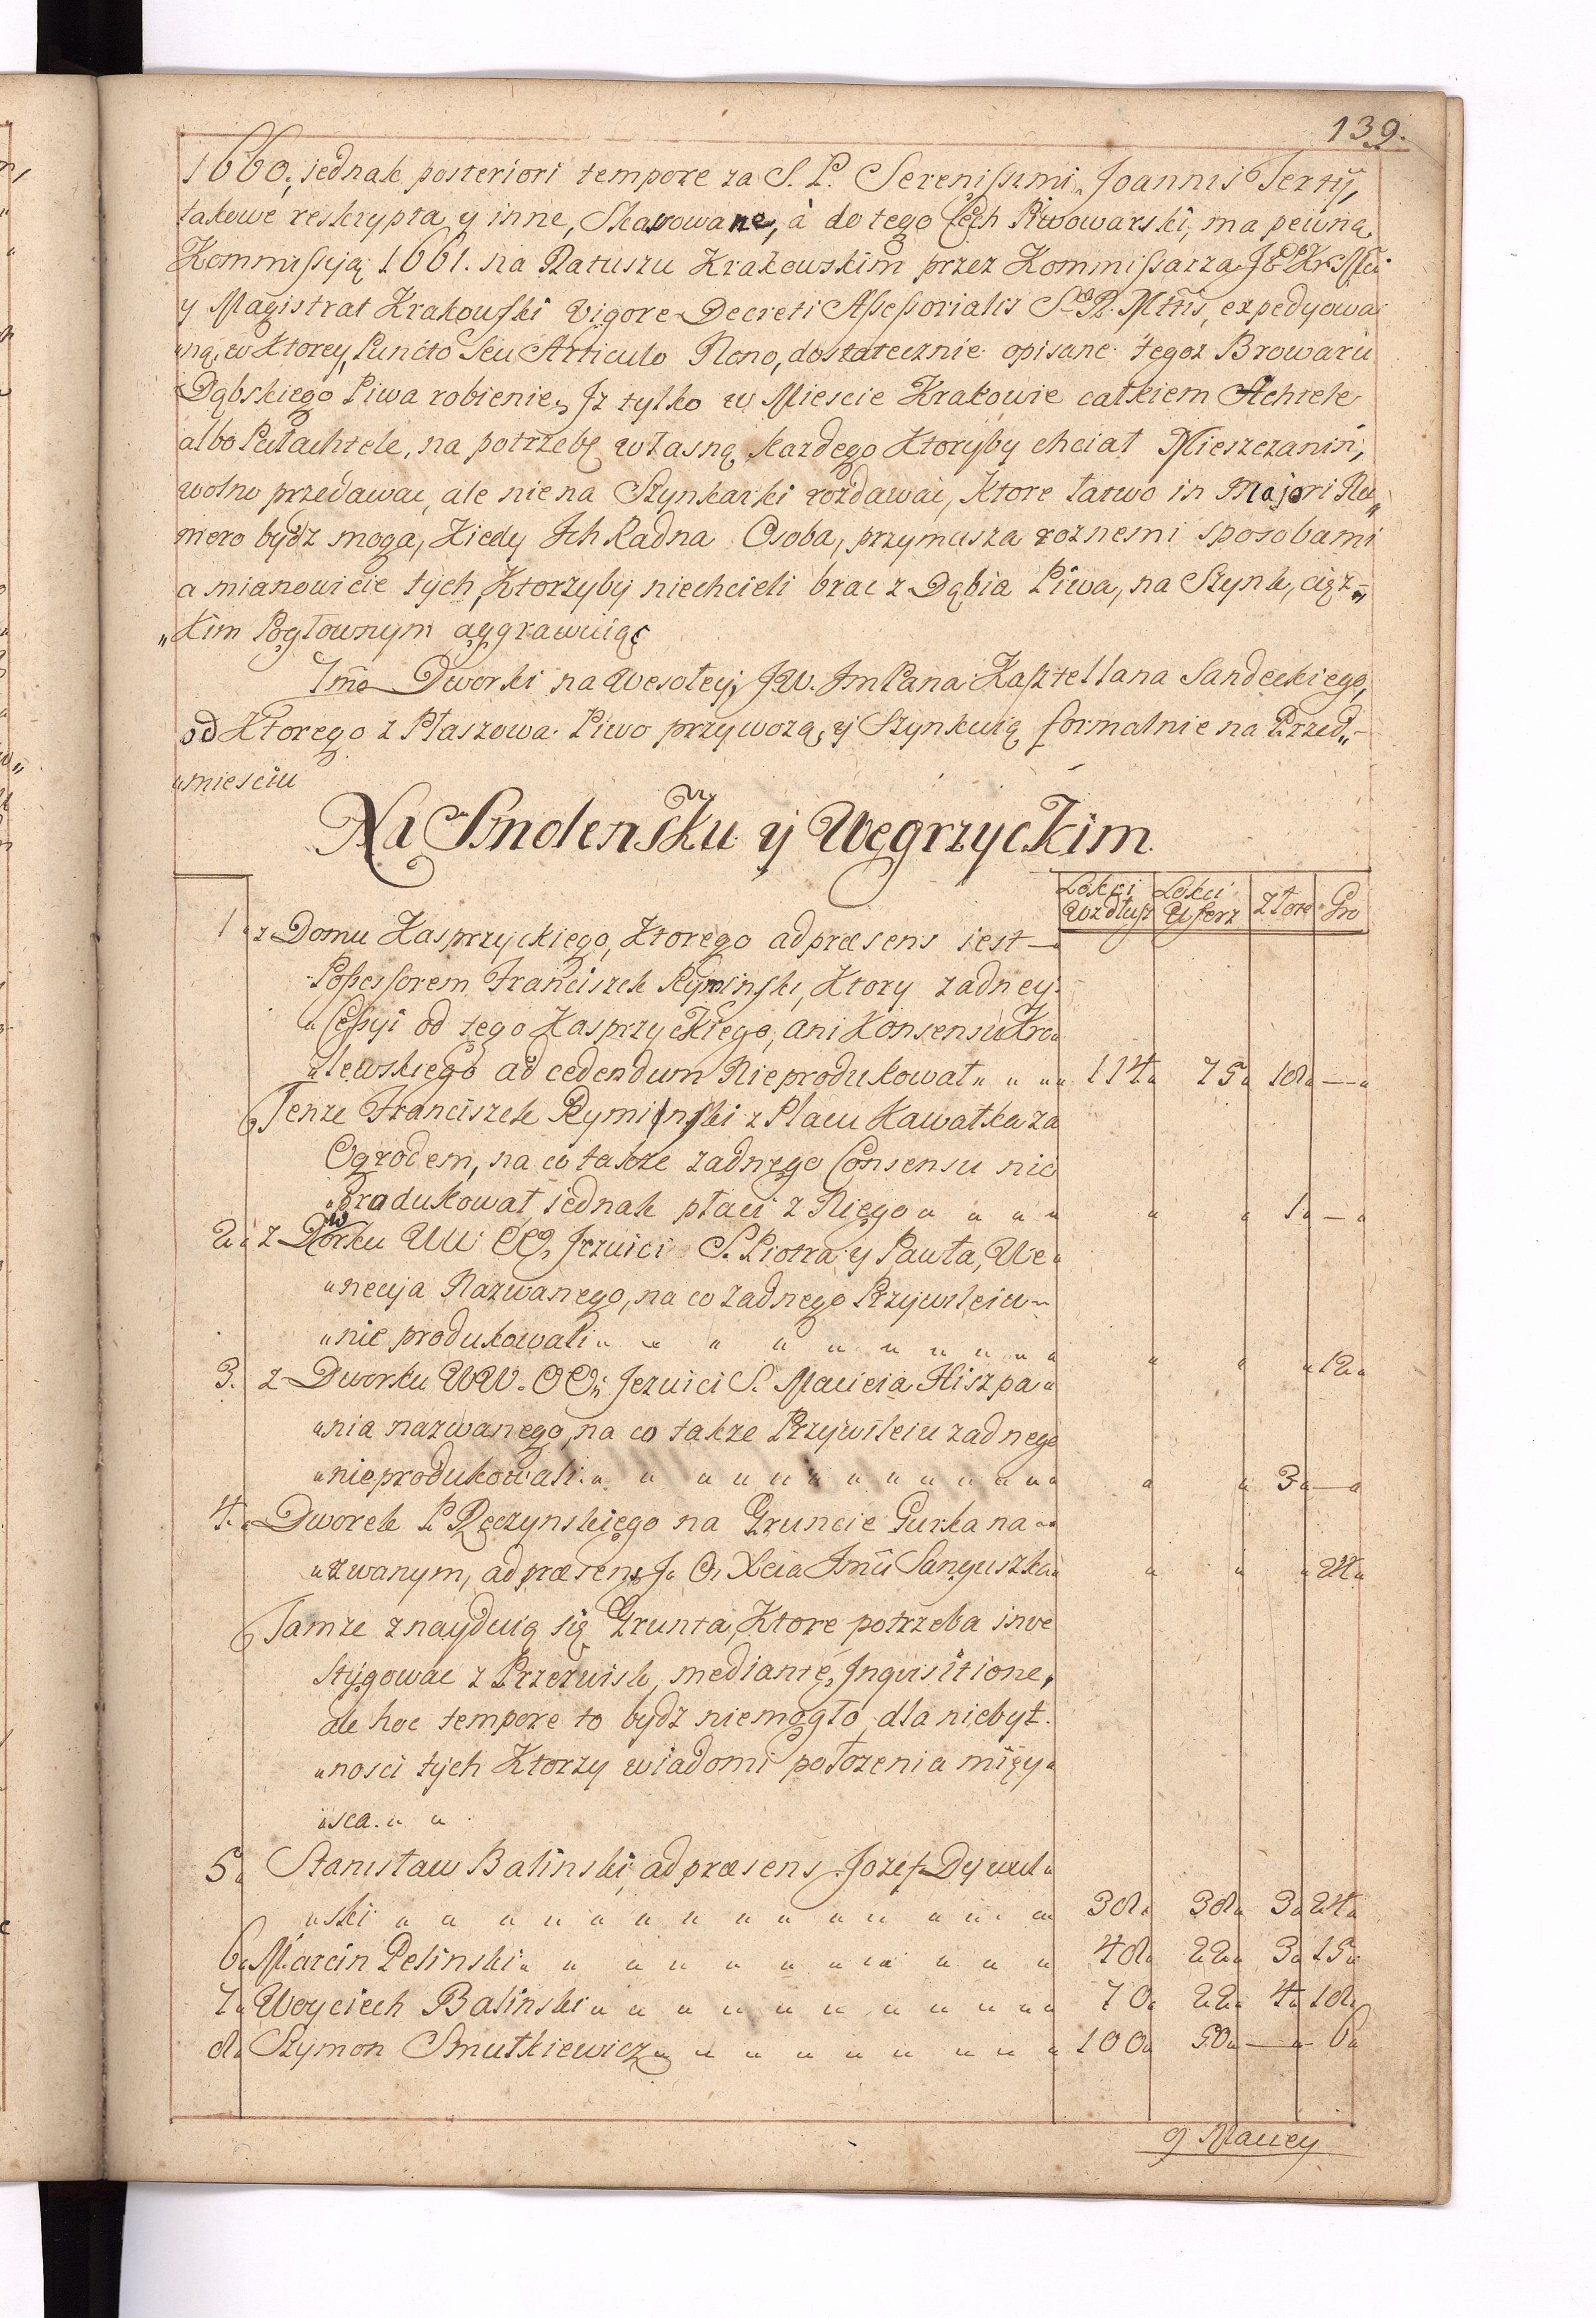 139.
1660; jednak posteriori tempore za S. P. Serenissimi Joannis Tertij,
takowe reskrypta y inne, Skasowane, à do tego Cech Piwowarski, ma pewną
Kommissyją 1661. na Ratuszu Krakowskim przez Kommissarza J K Mci
y Magistrat Krakowski vigore Decreti Assessorialis S. R. Mttis, expedyowa
„ną, w Ktorey Puncto Seu Articulo Nono, dostatecznie opisane tegoz Browaru
Dąbskiego Piwa robienie, Jz tylko w Miescie Krakowie całkiem Achtele
albo Pułachtele, na potrzebę własną kazdego Ktoryby chciał Mieszczanin,
wolno przedawac, ale nie na Szynkarki rozdawac, Ktore łatwo in Majori Nu„
mero bydz mogą, Kiedy Jch Radna Osoba, przymusza roznemi sposobami
a mianowicie tych, Ktorzyby niechcieli brac z Dąbia Piwa, na Szynk, cięz„
„Kim Pogłownym aggrawuiąc
7mo Dworki na Wesołey, JW. Jm Pana Kasztellana Sandeckiego,
od Ktorego z Płaszowa Piwo przywozą, y Szynkuią formalnie na Przed„
„miesciu
Na Smolensku y Węgrzyckim.
Lokci Wzdłusz Lokci Wszerz Złote Gro
1 z Domu Kasprzyckiego, Ktorego ad præsens iest
Possessorem Franciszek Ryminski, Ktory zadney
„Cessyi od tego Kasprzyckiego, ani Konsensu Kro„
„lewskiego ad cedendum Nieprodukował 114 75 18 —
Tenze Franciszek Ryminski z Placu Kawałka za
Ogrodem, na co takze zadnego Consensu nie
„produkował jednak płaci z Niego „ „ 1 —
2 z Dworku WW. OO. Jezuici S. Piotra y Pawła, We„
„necyja Nazwanego, na co zadnego Przywileiu
„nie produkowali „ „ „ 12
3. z Dworku WW. OO. Jezuici S. Macieia Hiszpa„
„nia nazwanego, na co takze Przywileiu zadnego
„nieprodukowali „ „ 3 —
4. Dworek P Ręczynskiego na Gruncie Gurka na„
„zwanym, ad præsens J. O. Xcia Jmci Sanguszka „ „ „ 24
Tamze znayduią się Grunta, Ktore potrzeba inwe
stygowac z Przezwisk, mediante Jnquisitione,
ale hoc tempore to bydz niemogło, dla niebyt„
„nosci tych Ktorzy wiadomi połozenia miey„
„sca. „ „
5 Stanisław Balinski, ad præsens Jozef
„ski 38 38 3 24
6 Marcin Pelinski 48 22 3 15
7 Woyciech Balinski 70 22 4 18
8 Szymon Smutkiewicz 100 50 — 6